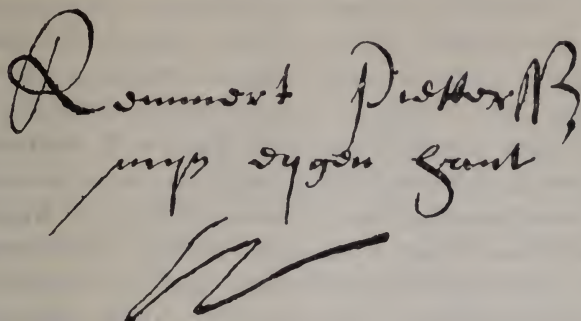 Remmert Pietterss
mijn eygen hant